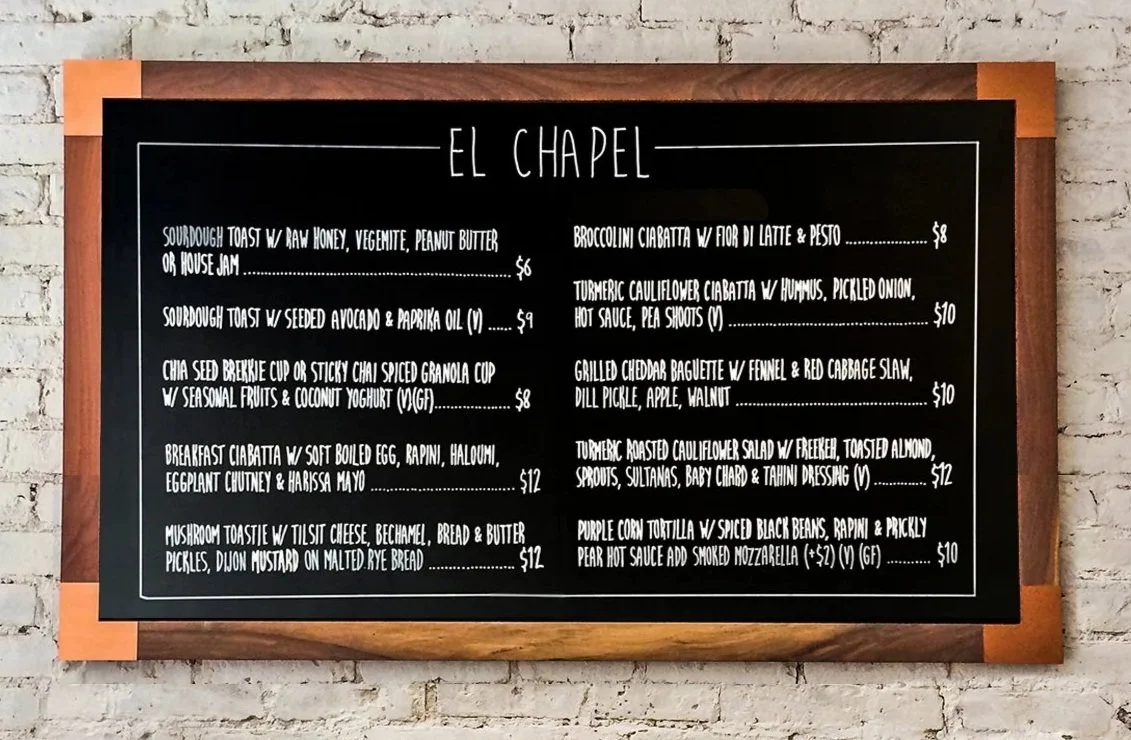 EL CHAPEL
SOURDOUGH TOAST W/ RAW HONEY, VEGEMITE, PEANUT BUTTER
OR HOUSE JAM ........................................ $6
SOURDOUGH TOAST W/ SEEDED AVOCADO & PAPRIKA OIL (V) ...... $9
CHIA SEED BREKKIE CUP OR STICKY CHAI SPICED GRANOLA CUP
W/ SEASONAL FRUITS & COCONUT YOGHURT (V)(GF).................. $8
BREAKFAST CIABATTA W/ SOFT BOILED EGG, RAPINI, HALOUMI,
EGGPLANT CHUTNEY & HARISSA MAYO ........................ $12
MUSHROOM TOASTIE W/ TILSIT CHEESE, BECHAMEL, BREAD & BUTTER
PICKLES, DIJON MUSTARD ON MALTED RYE BREAD .................. $12
BROCCOLINI CIABATTA W/ FIOR DI LATTE & PESTO .................. $8
TURMERIC CAULIFLOWER CIABATTA W/ HUMMUS, PICKLED ONION,
HOT SAUCE, PEA SHOOTS (V) .............................. $10
GRILLED CHEDDAR BAGUETTE W/ FENNEL & RED CABBAGE SLAW,
DILL PICKLE, APPLE, WALNUT .............................. $10
TURMERIC ROASTED CAULIFLOWER SALAD W/ FREEKEH, TOASTED ALMOND,
SPROUTS, SULTANAS, BABY CHARD & TAHINI DRESSING (V) ............ $12
PURPLE CORN TORTILLA W/ SPICED BLACK BEANS, RAPINI & PRICKLY
PEAR HOT SAUCE ADD SMOKED MOZZARELLA (+$2) (V) (GF) .......... $10